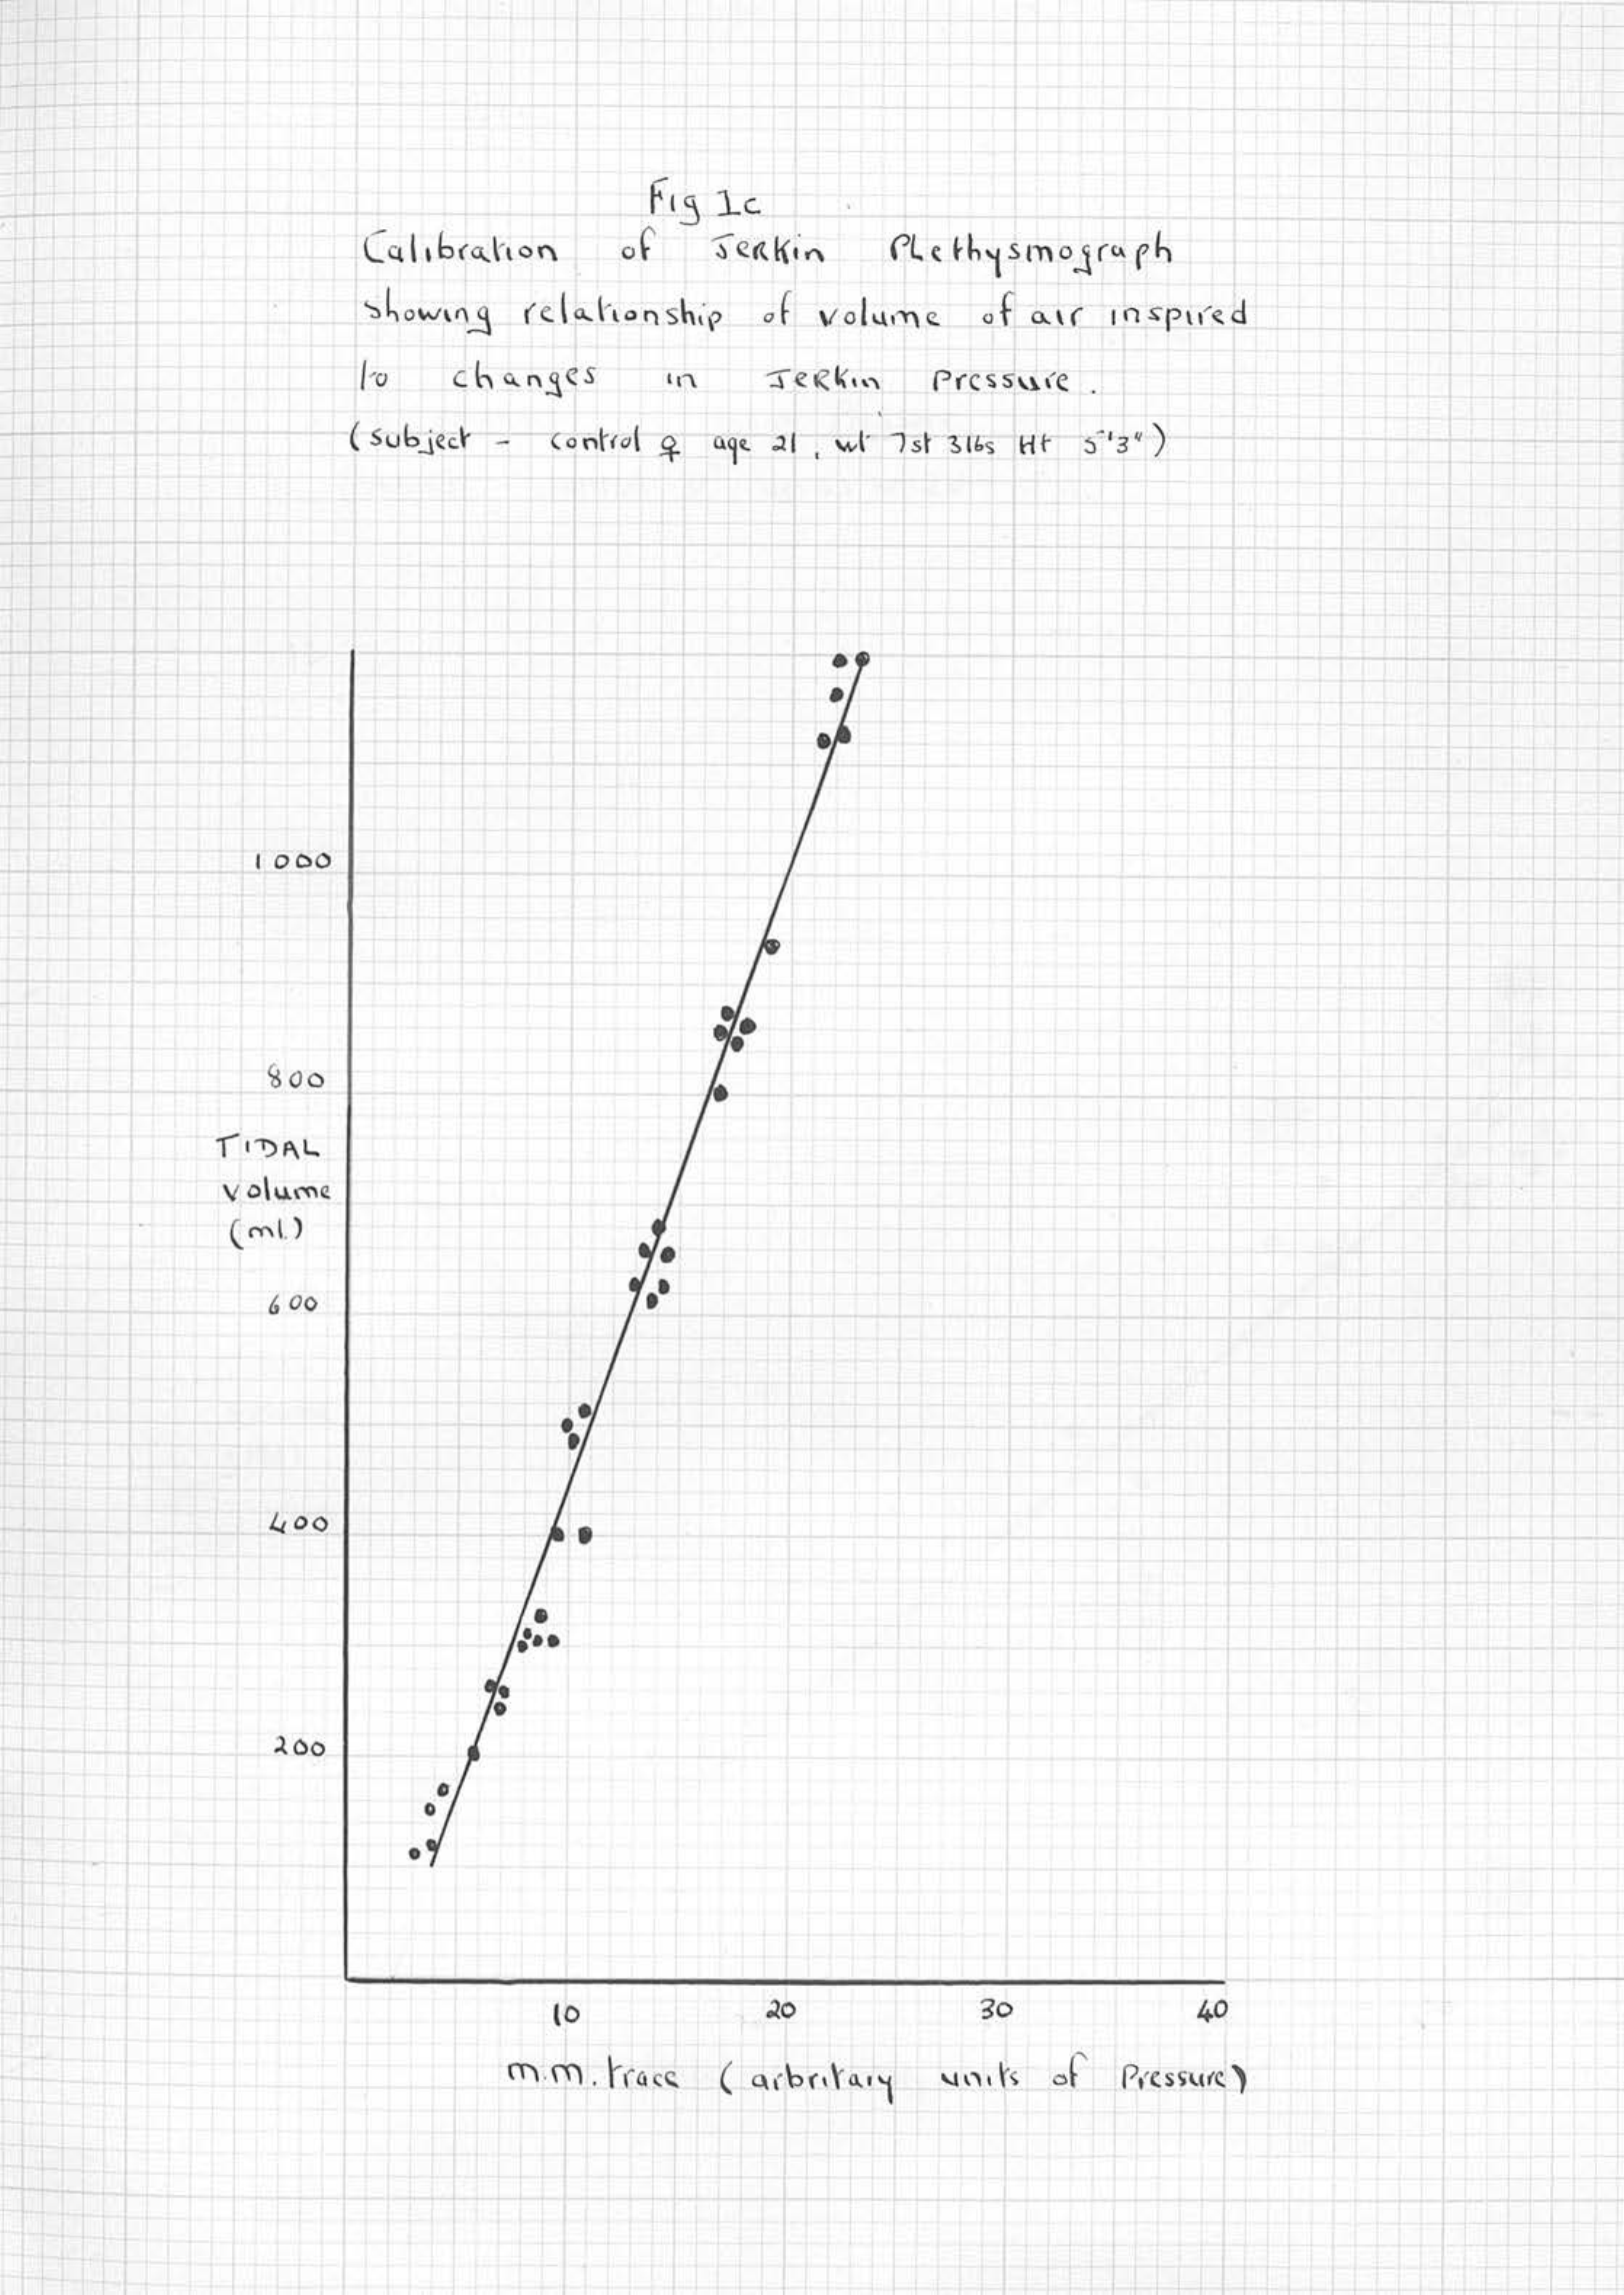 Fig 1c
Calibration of Jerkin Plethysmograph
showing relationship of volume of air inspired
to changes in Jerkin Pressure.
(subject - control ♀ age 21, wt 7st 3lbs Ht 5'3")
1000
800
TIDAL
volume
(ml.)
600
400
200
10 20 30 40
m.m. trace (arbritary units of Pressure)